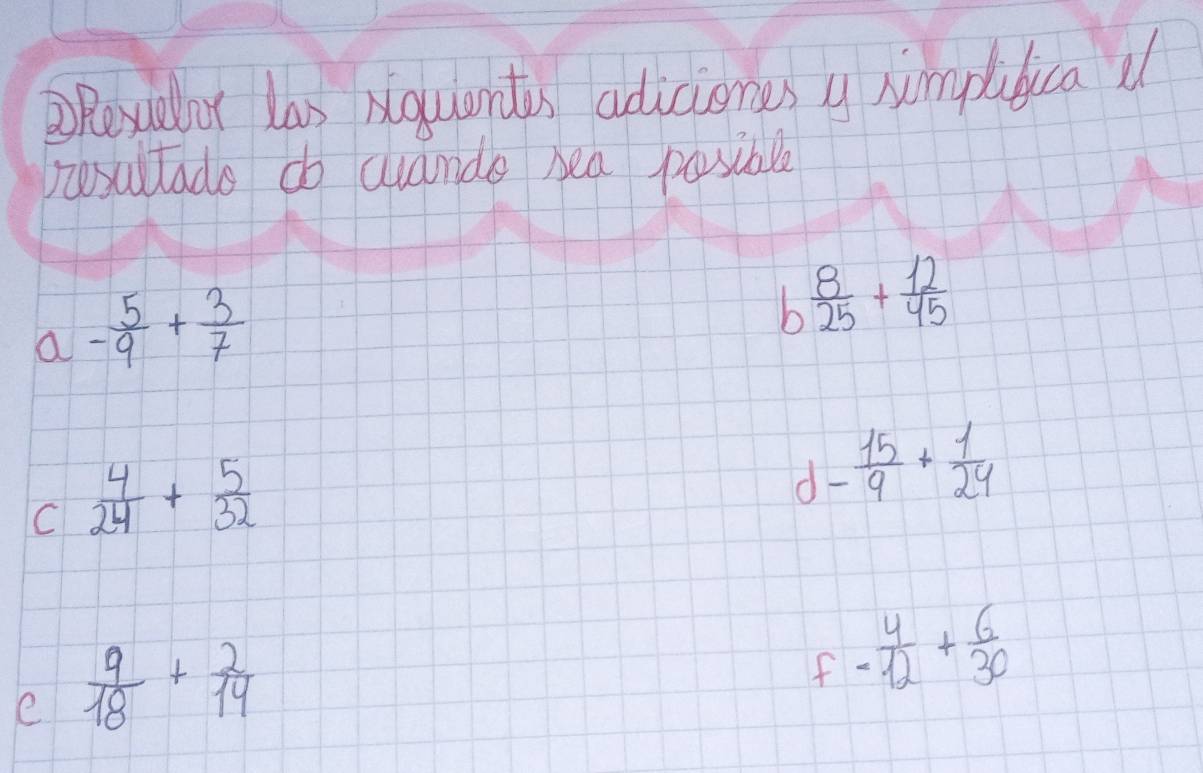 ② Resuelvr las siguientes adiciones y simplifica el
resultado do cuando sea posible
a -5/9 + 3/7
b 8/25 + 12/45
c 4/24 + 5/32
d -15/9 + 1/24
e 9/18 + 2/14
f -4/12 + 6/30